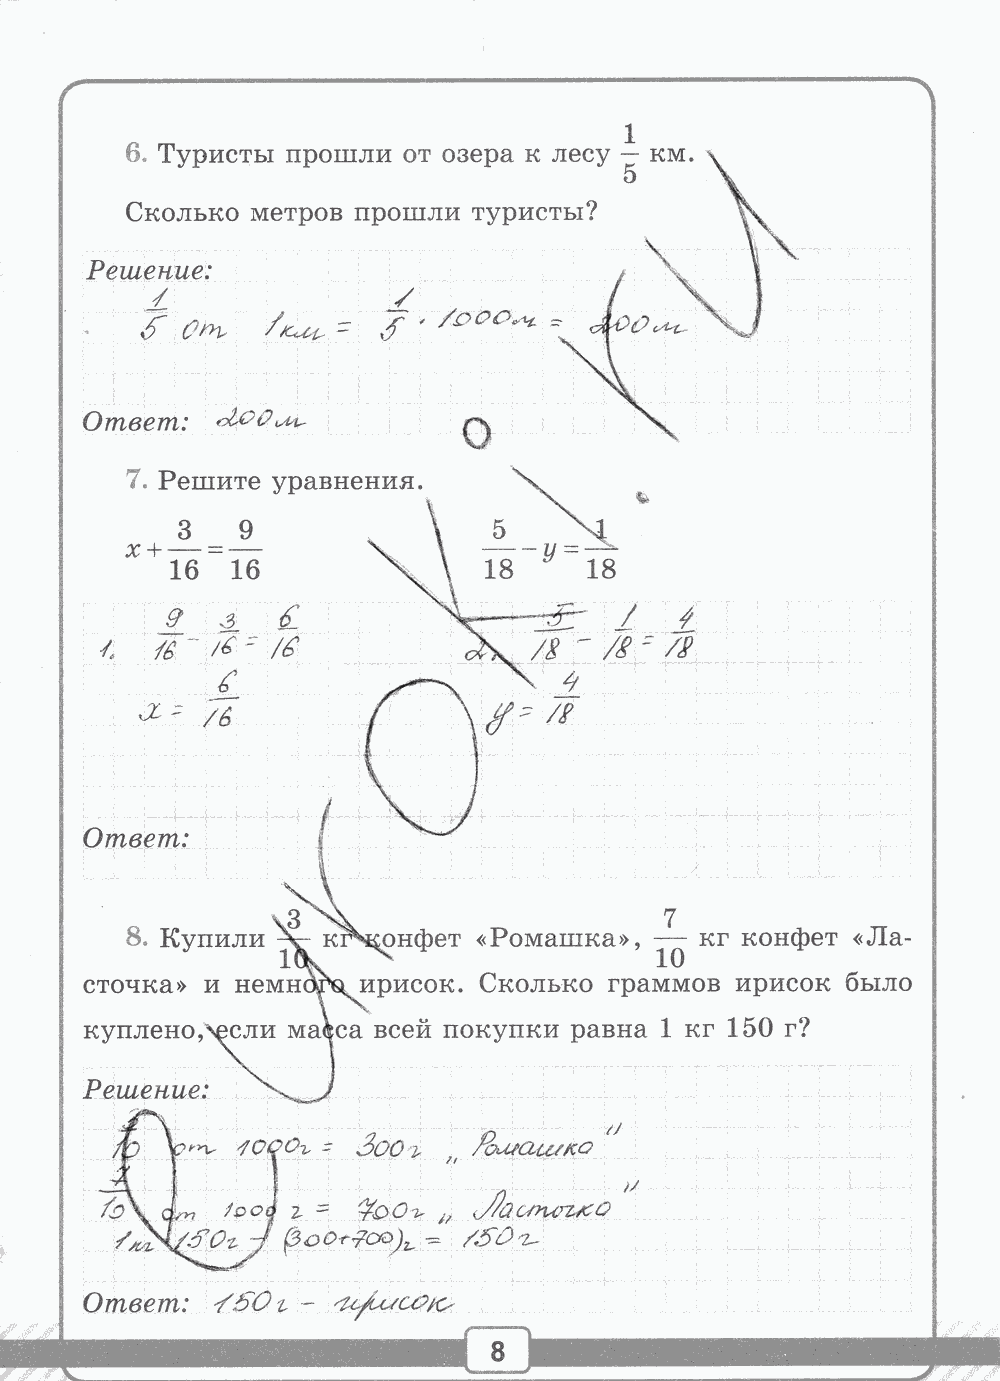 6. Туристы прошли от озера к лесу 1/5 км.
Сколько метров прошли туристы?
Решение:
1/5 от 1км = 1/5 · 1000м = 200м
Ответ: 200м
7. Решите уравнения.
x + 3/16 = 9/16 5/18 − y = 1/18
1. 9/16 − 3/16 = 6/16 2. 5/18 − 1/18 = 4/18
x = 6/16 y = 4/18
Ответ:
8. Купили 3/10 кг конфет «Ромашка», 7/10 кг конфет «Ла-
сточка» и немного ирисок. Сколько граммов ирисок было
куплено, если масса всей покупки равна 1 кг 150 г?
Решение:
3/10 от 1000г = 300г „Ромашка"
7/10 от 1000 г = 700г „Ласточка"
1кг 150г − (300+700)г = 150г
Ответ: 150г − ирисок
8
uroki.ru